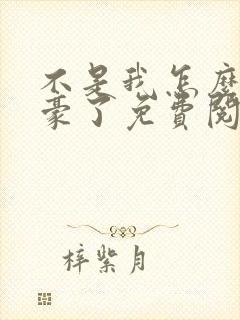 不是我怎麽
豪了免費閱
梓紫月